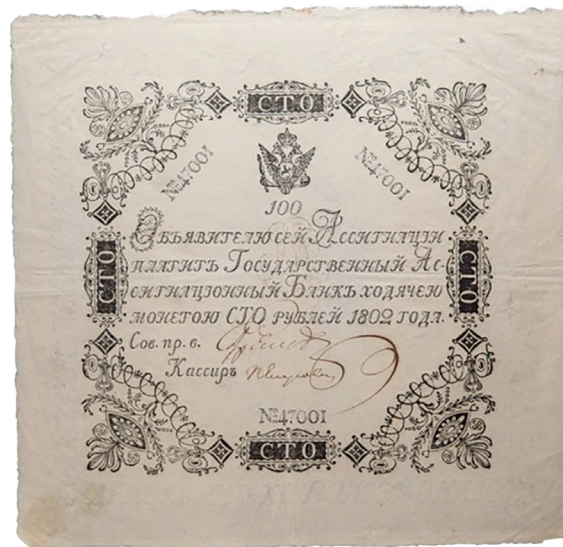 СТО
№47001
№47001
100
Объявителю сей Ассигнаціи
СТО
платитъ Государственный Ас-
сигнаціонный Банкъ ходячею
монетою СТО рублей 1802 года.
СТО
Сов. пр. в.
Кассиръ
№47001
СТО